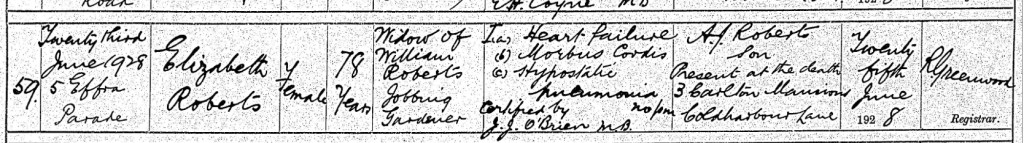 E.H. Coyne M.B.
59.
Twenty third
June 1928
5 Effra
Parade
Elizabeth
Roberts
Female
78
Years
Widow of
William
Roberts
Jobbing
Gardener
I(a) Heart Failure
(b) Morbus Cordis
(c) Hypostatic
pneumonia
Certified by no pm
J.J. O'Brien M.B.
A.J. Roberts
Son
Present at the death
3 Carlton Mansions
Coldharbour Lane
Twenty
fifth
June
192 8
R Greenwood
Registrar.